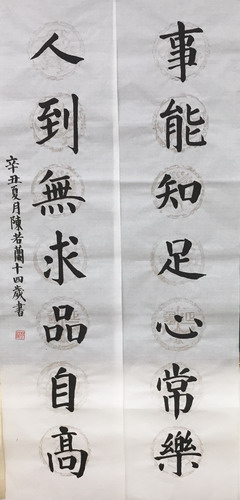 事能知足心常樂
人到無求品自高
辛丑夏月陳若蘭十四歲書